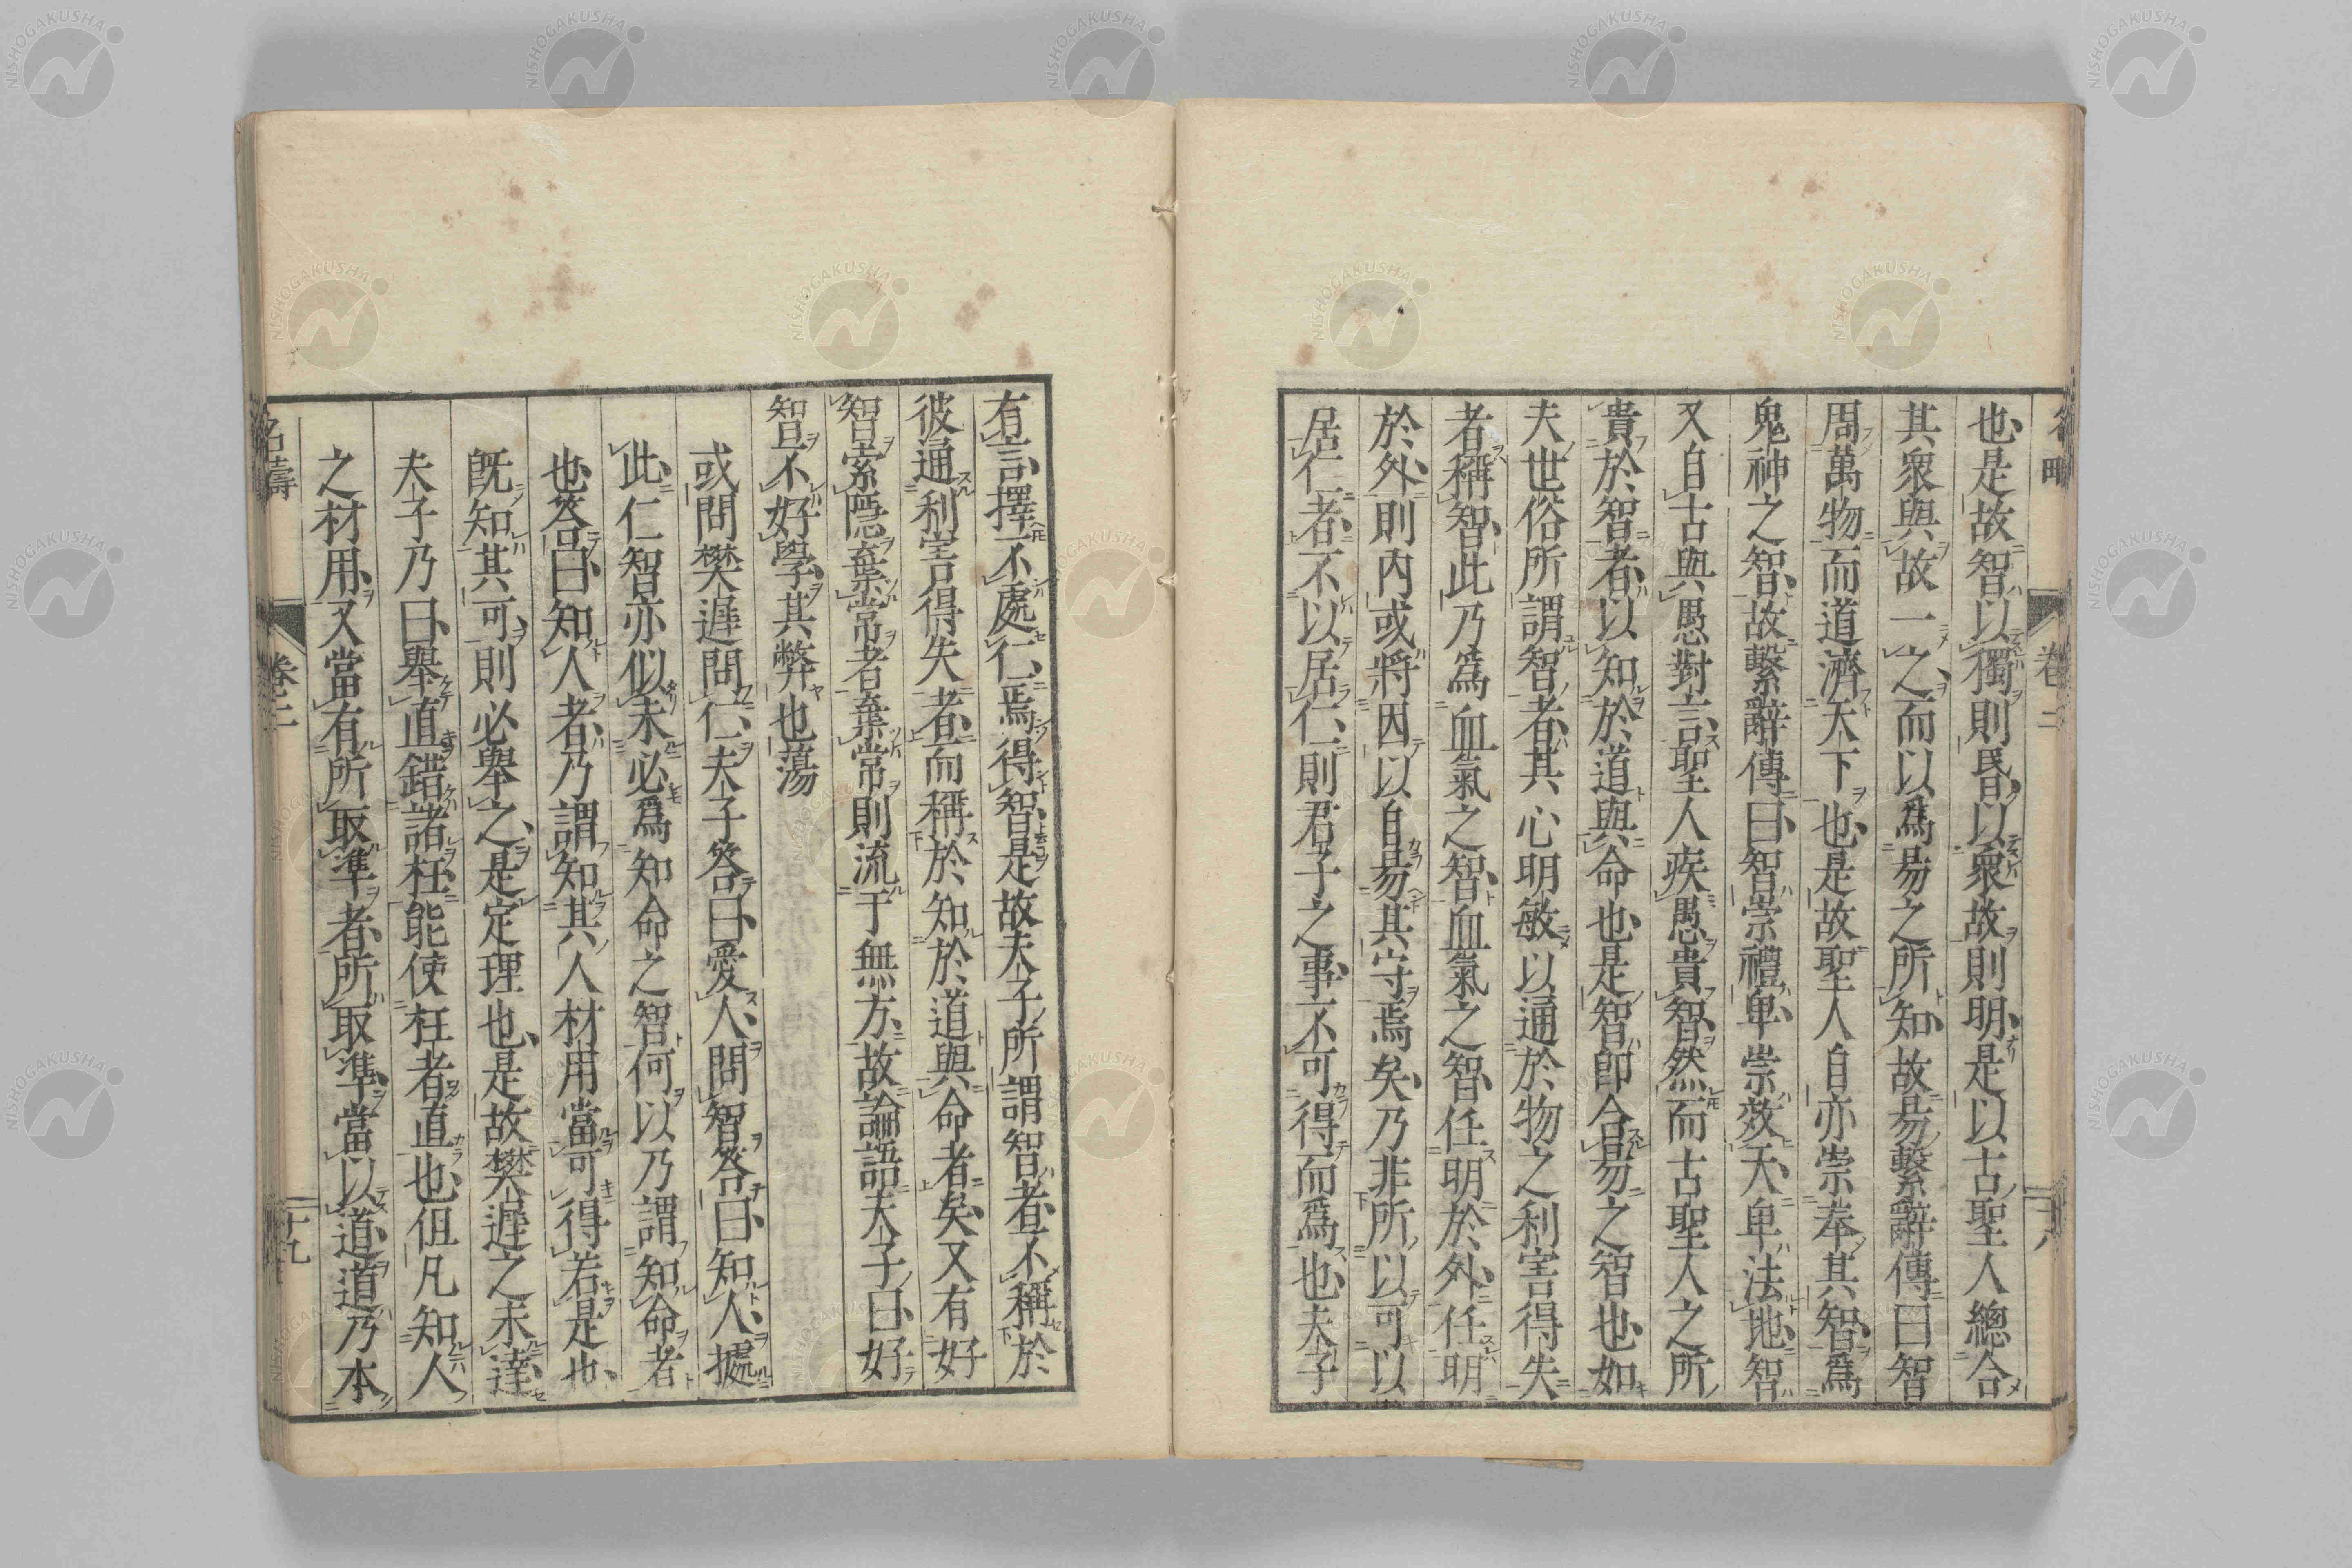 也是故智以獨則昏以衆故則明是以古聖人總合
其衆與故一之而以爲易之所知故易繫辭傳曰智
周萬物而道濟天下也是故聖人自亦崇奉其智爲
鬼神之智故繫辭傳曰智崇禮卑崇效天卑法地智
又自古與愚對言聖人疾愚貴智然而古聖人之所
貴於智者以知於道與命也是智卽合易之智也如
夫世俗所謂智者其心明敏以通於物之利害得失
者稱智此乃爲血氣之智血氣之智任明於外任明
於外則內或將因以自易其守焉矣乃非所以可以
居仁者不以居仁則君子之事不可得而爲也夫子
卷二
十八
有言擇不處仁焉得智是故夫子所謂智者不稱於
彼通利害得失者而稱於知於道與命者矣又有好
智索隱棄常者棄常則流于無方故論語夫子曰好
智不好學其弊也蕩
或問樊遲問仁夫子答曰愛人問智答曰知人據
此仁智亦似未必爲知命之智何以乃謂知命者
也答曰知人者乃謂知其人材用當可得若是也
旣知其可則必舉之是定理也是故樊遲之未達
夫子乃曰舉直錯諸枉能使枉者直也但凡知人
之材用又當有所取準者所取準當以道道乃本
名疇
卷二
十九
NISHOGAKUSHA